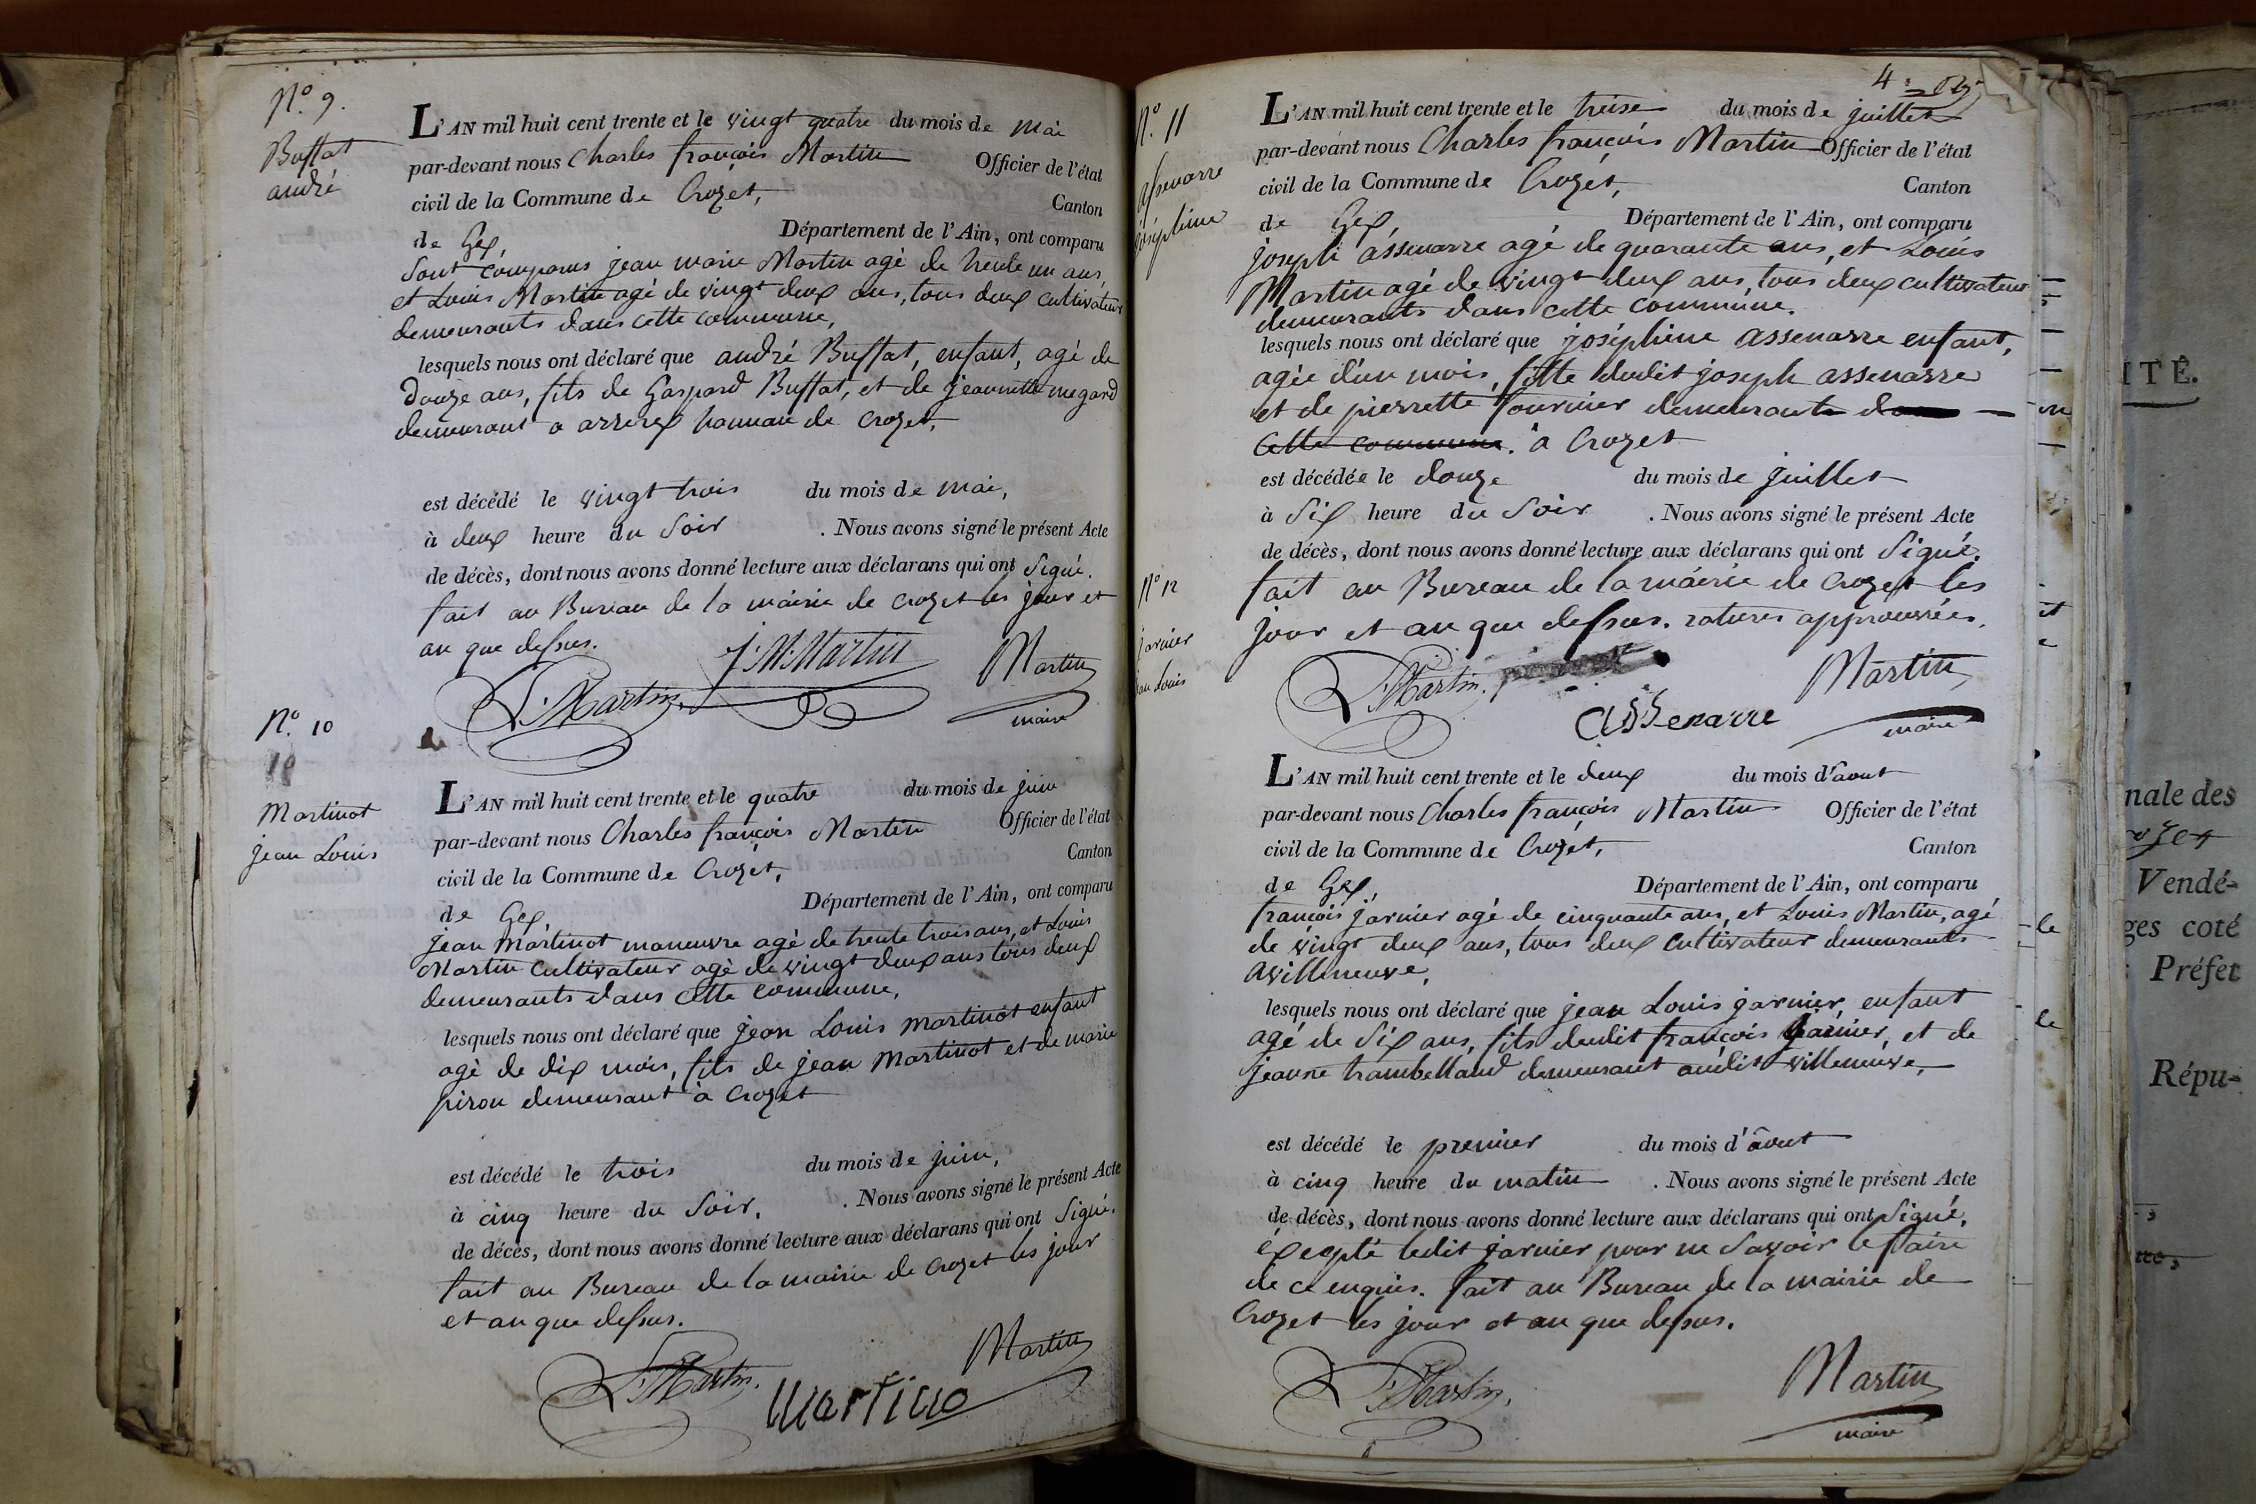 N.º 9.
Buffat
andré
L'AN mil huit cent trente et le vingt quatre du mois de mai
par-devant nous Charles françois Martin Officier de l'état
civil de la Commune de Crozet, Canton
de Gex, Département de l'Ain, ont comparu
Sont comparus jean marie Martin agé de trente un ans,
et Louis Martin agé de vingt deux ans, tous deux cultivateurs
demeurants dans cette commune,
lesquels nous ont déclaré que andré Buffat, enfant, agé de
Douze ans, fils de Gaspard Buffat, et de jeannette megard
demeurant a arrerex hanmau de Crozet,
est décédé le vingt trois du mois de mai,
à deux heure du Soir . Nous avons signé le présent Acte
de décès, dont nous avons donné lecture aux déclarans qui ont Signé.
fait au Bureau de la mairie de Crozet les jour et
an que dessus.
J: M: Martin
L: Martin.
Martin
maire
N.º 10
10
Martinot
jean Louis
L'AN mil huit cent trente et le quatre du mois de juin
par-devant nous Charles françois Martin Officier de l'état
civil de la Commune de Crozet, Canton
de Gex, Département de l'Ain, ont comparu
jean Martinot maneuvre agé de trente trois ans, et Louis
Martin Cultivateur agé de vingt deux ans tous deux
demeurants dans cette commune,
lesquels nous ont déclaré que jean Louis martinot enfant
agé de dix mois, fils de jean Martinot et de marie
piron demeurant à Crozet
est décédé le trois du mois de juin,
à cinq heure du Soir, . Nous avons signé le présent Acte
de décès, dont nous avons donné lecture aux déclarans qui ont Signé.
fait au Bureau de la mairie de Crozet les jour
et an que dessus.
L: Martin.
Martino
Martin
4.
N.º 11
assenarre
joséphine
L'AN mil huit cent trente et le treise du mois de juillet
par-devant nous Charles françois Martin Officier de l'état
civil de la Commune de Crozet, Canton
de Gex, Département de l'Ain, ont comparu
joseph assenarre agé de quarante ans, et Louis
Martin agé de vingt deux ans, tous deux cultivateurs
demeurants dans cette commune.
lesquels nous ont déclaré que joséphine assenarre enfant,
agée d'un mois, fille dudit joseph assenarre
et de pierrette fournier demeurants
cette commune. à Crozet
est décédée le douze du mois de juillet
à Six heure du Soir . Nous avons signé le présent Acte
de décès, dont nous avons donné lecture aux déclarans qui ont Signé.
fait au Bureau de la mairie de Crozet les
jour et an que dessus. ratures approuvées.
L: Martin.
Assenarre
Martin
maire
N.º 12
jarnier
jean Louis
L'AN mil huit cent trente et le deux du mois d'août
par-devant nous Charles françois Martin Officier de l'état
civil de la Commune de Crozet, Canton
de Gex, Département de l'Ain, ont comparu
françois jarnier agé de cinquante ans, et Louis Martin, agé
de vingt deux ans, tous deux cultivateur demeurants
a villeneuve,
lesquels nous ont déclaré que jean Louis jarnier, enfant
agé de Six ans, fils dudit françois jarnier, et de
jeanne trambelland demeurant audit villeneuve,
est décédé le premier du mois d'août
à cinq heure du matin . Nous avons signé le présent Acte
de décès, dont nous avons donné lecture aux déclarans qui ont Signé,
éxcepté ledit jarnier pour ne Savoir le faire
de ce enquis. fait au Bureau de la mairie de
Crozet les jour et an que dessus.
L: Martin.
Martin
maire
ITÉ.
nale des
Vendé-
ges coté
Préfet
Répu-